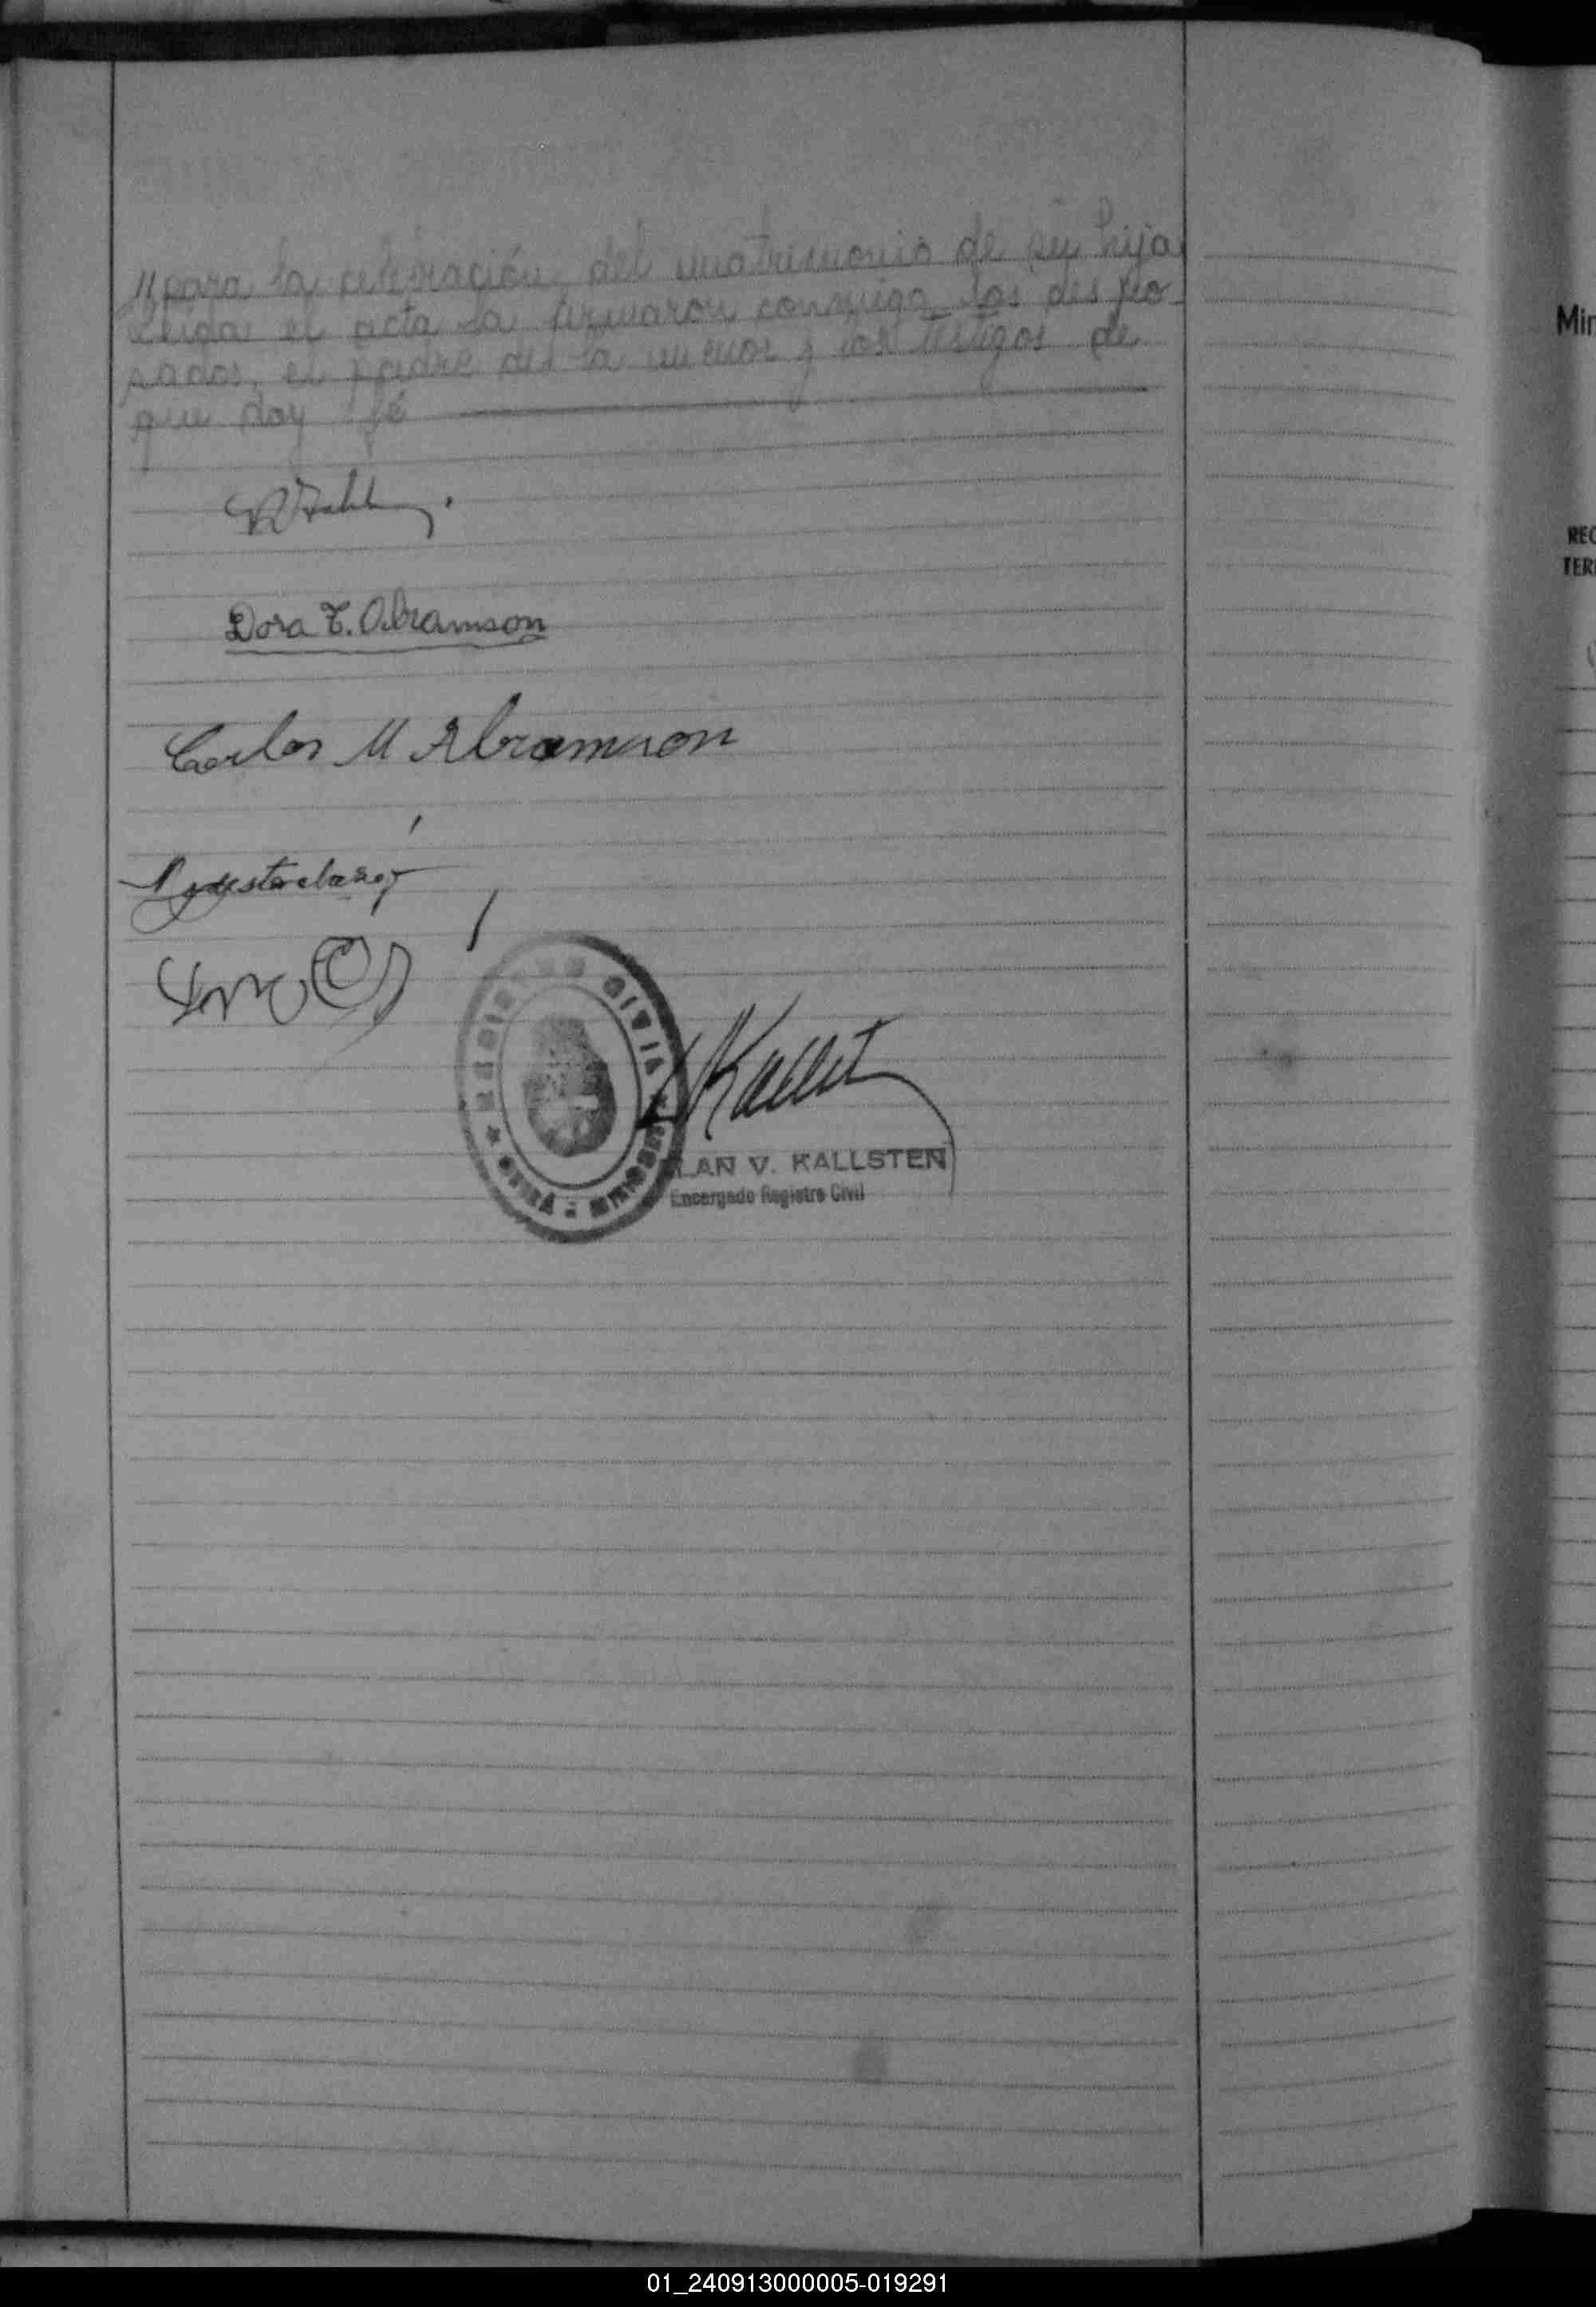 // para la celebración del matrimonio de su hija
Leída el acta la firmaron conmigo los despo-
sados, el padre de la menor y los testigos de
que doy fé
Dora T. Abramson
Carlos M Abramson
REGISTRO CIVIL
OBERÁ - MISIONES
Kallst
LAN V. KALLSTEN
Encargado Registro Civil
Min
REG
TER
01_240913000005-019291